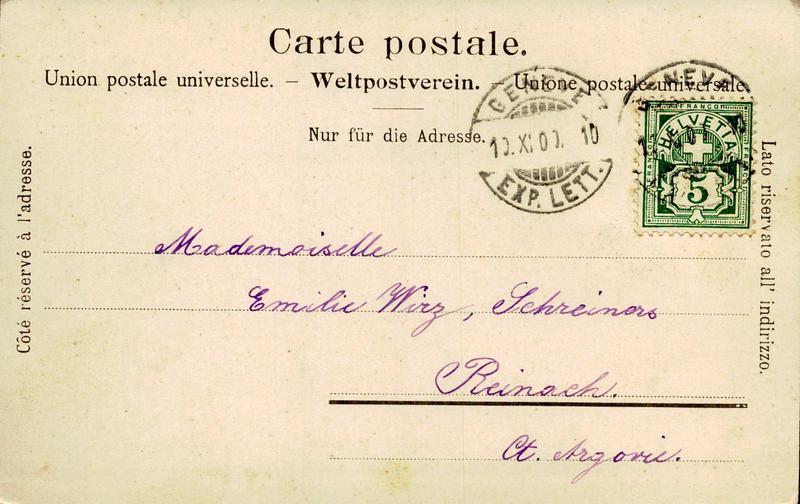 Carte postale.
Union postale universelle. – Weltpostverein. – Unione postale universale
Nur für die Adresse.
GENÈVE
10. XI. 00. 10
EXP. LETT.
GENÈVE
FRANCO
HELVETIA
5
Côté réservé à l'adresse.
Lato riservato all' indirizzo.
Mademoiselle
Emilie Wirz, Schreiners
Reinach.
Ct. Argovie.